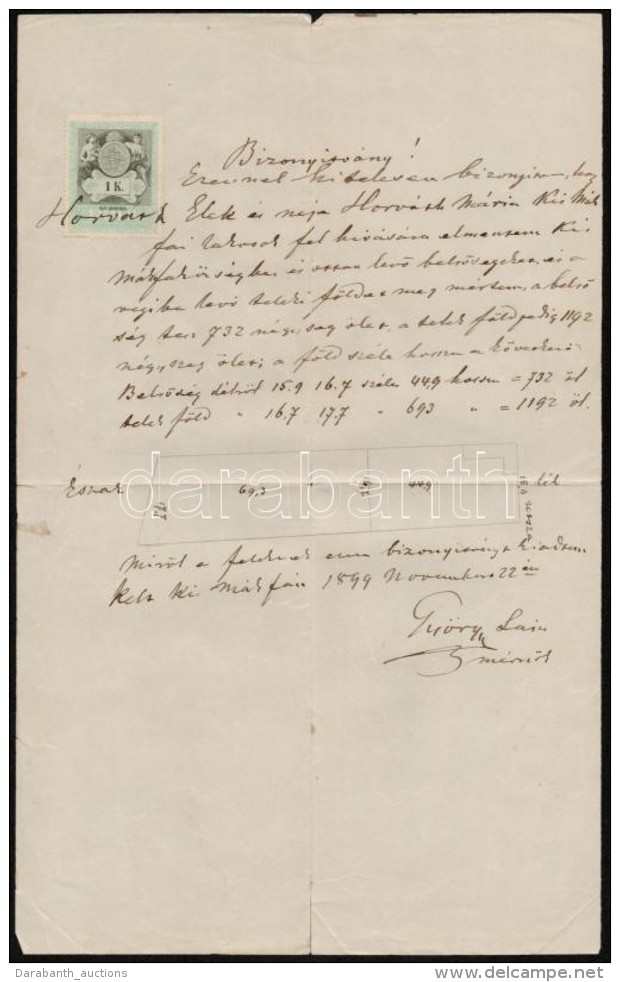 1 K.
Bizonyitvány!
Ezennel hitelesen bizonyitom, hogy
Horváth Elek és neje Horváth Mária Kis Mák
fai lakosok fel hivására elmentem Kis
Mákfa községbe és ottan levő belsőségeket, és a
végibe levő teleki földet meg mértem, a belső
ség tesz 732 négyszeg ölet, a telek föld pedig 1192
négyszeg ölet; a föld széle hossza a következő
Belsőség délről 15.9 16.7 széles 44.9 hossza = 732 öl
telek föld " 16.7 17.7 " 69.3 " = 1192 öl.
Észak 17.7 69.3 16.7 44.9 15.9 utcza dél
darabanth
Miről a feleknek ezen bizonyitványt kiadtam
Kelt Kis Mákfán 1899 November 22 én
Győry Lajos
mérnök
Darabanth_auctions
©DELCAMPE.NET